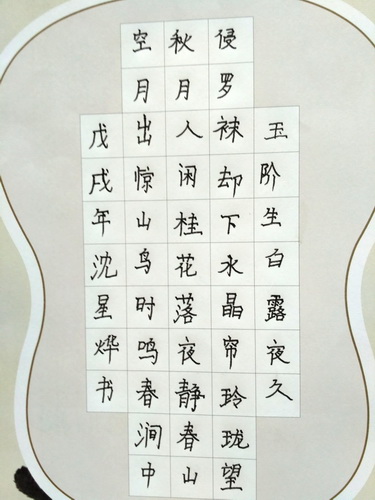 玉阶生白露夜久
侵罗袜却下水晶帘玲珑望
秋月人闲桂花落夜静春山
空月出惊山鸟时鸣春涧中
戊戌年沈星烨书